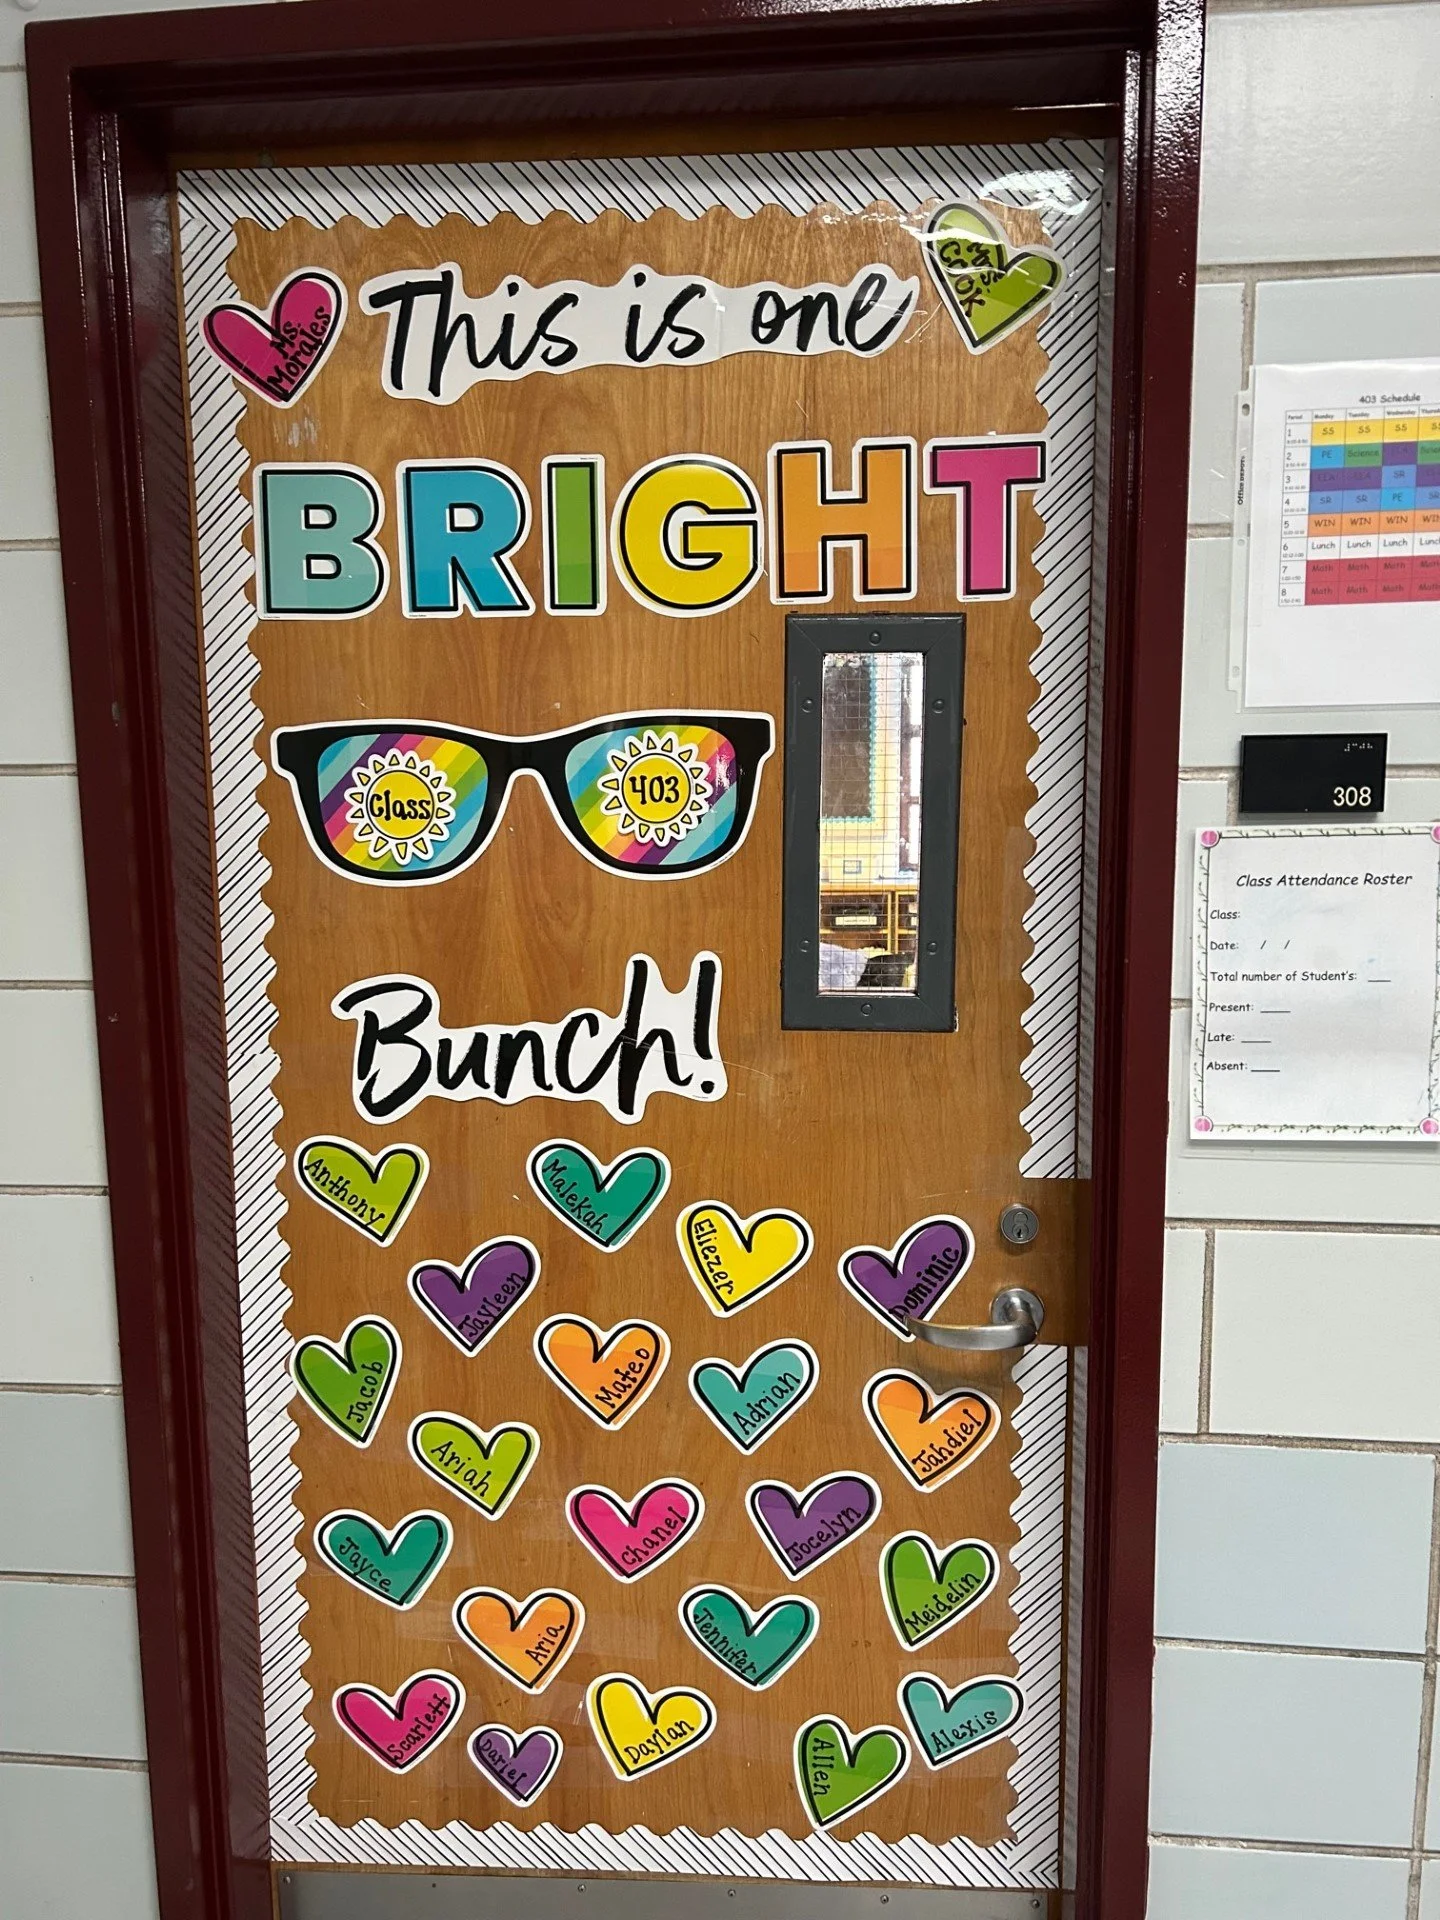 Ms.
Morales
This is one
BRIGHT
Class
403
Bunch!
Anthony
Malekah
Eliezer
Dominic
Jayleen
Jacob
Mateo
Adrian
Jahdiel
Ariah
Chanel
Jocelyn
Jayce
Meidelin
Aria
Jennifer
Scarlett
Dariel
Daylan
Allen
Alexis
403 Schedule
Period Monday Tuesday Wednesday
1 SS SS SS SS
2 PE Science
3 SR
4 SR SR PE SR
5 WIN WIN WIN WIN
6 Lunch Lunch Lunch Lunch
7 Math Math Math Math
8 Math Math Math Math
Office DEPOT
308
Class Attendance Roster
Class:
Date: / /
Total number of Student's: ___
Present: ____
Late: ____
Absent: ____